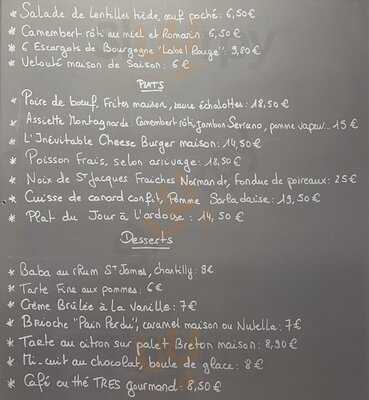 * Salade de lentilles tiède, œuf poché : 6,50€
* Camembert rôti au miel et Romarin : 6,50€
* 6 Escargots de Bourgogne "Label Rouge" : 9,80€
* Velouté maison de Saison : 6€
PLATS
* Poire de bœuf, Frites maison, sauce échalottes : 18,50€
* Assiette Montagnarde Camembert rôti, Jambon Serrano, pomme vapeur.. 15€
* L'Inévitable Cheese Burger maison : 14,50€
* Poisson Frais, selon arrivage : 18,50€
* Noix de St Jacques Fraiches Normande, fondue de poireaux : 25€
* Cuisse de canard confit, Pomme Sarladaise : 19,50€
* Plat du Jour à l'ardoise : 14,50€
Desserts
* Baba au Rhum St James, chantilly : 9€
* Tarte Fine aux pommes : 6€
* Crème Brûlée à la Vanille : 7€
* Brioche "Pain Perdu", caramel maison ou Nutella : 7€
* Tarte au citron sur palet Breton maison : 8,90€
* Mi-cuit au chocolat, boule de glace : 8€
* Café ou thé TRES gourmand : 8,50€